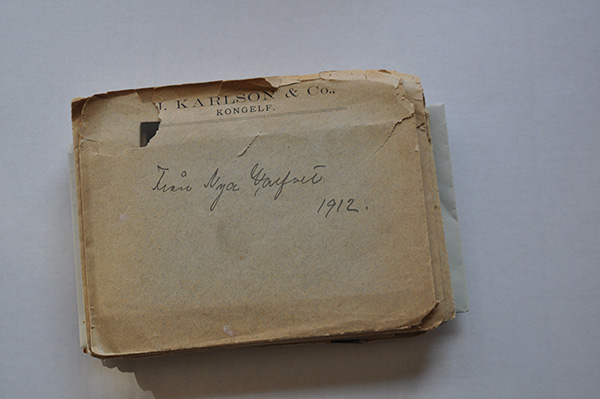 . KARLSON & Co.,
KONGELF.
Från Nya Varfvet
1912.